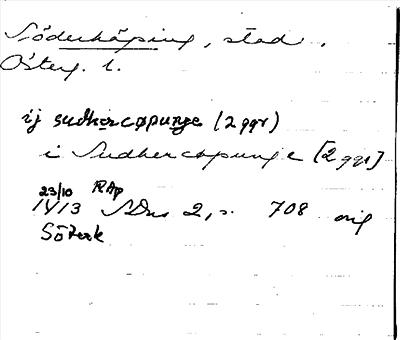 Söderköping, stad.
Österg. l.
ij sudhercøpunge (2 ggr)
i Sudhercopunge [2 ggr]
23/10 RAp
1413 SDns 2, s. 708 orig
Söderk